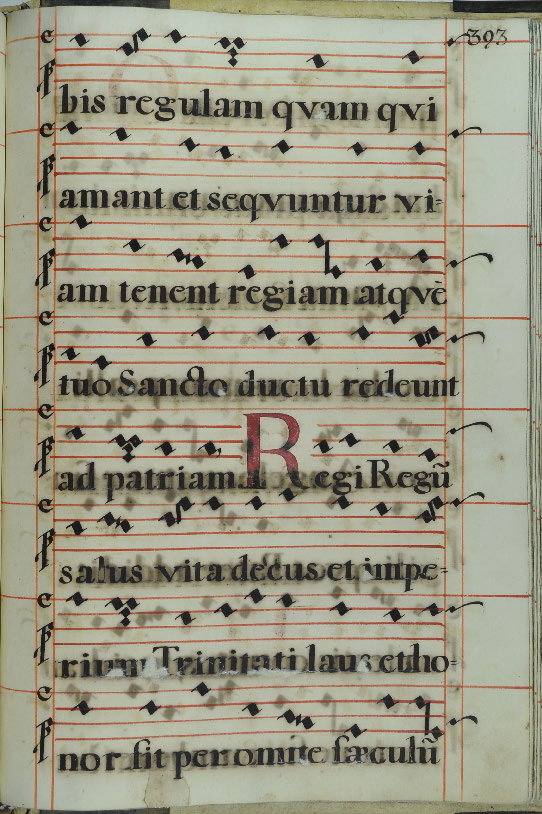 393
bis regulam qvam qvi
amant et seqvuntur vi-
am tenent regiam atqvè
tuo Sancto ductu redeunt
ad patriam. Regi Regū
salus vita decus et impe-
rium Trinitati laus et ho-
nor sit per omne sæculū